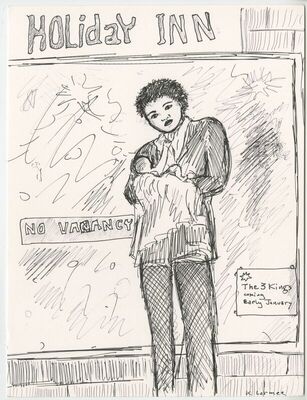 HOLiday INN
NO VACANCY
The 3 Kings
coming
Early January
K Larmee